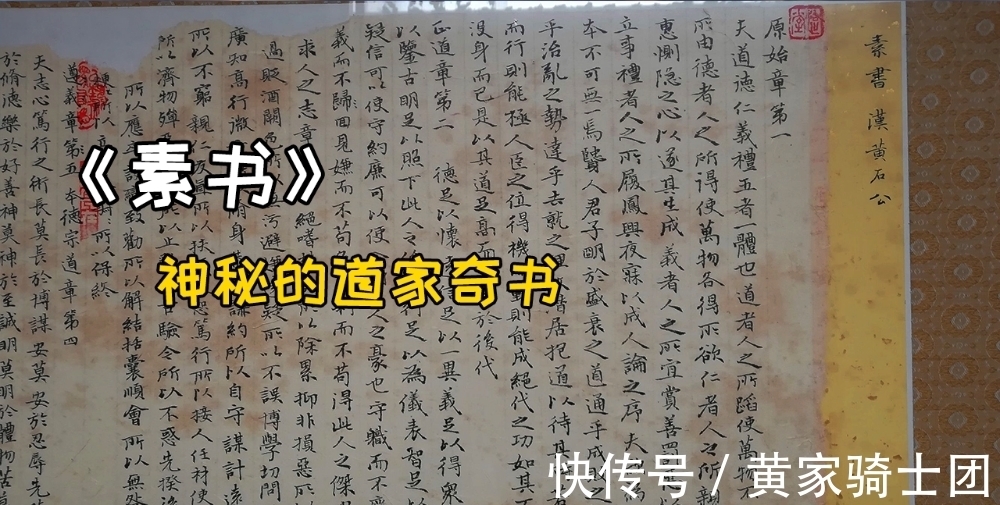 素書 漢黃石公
原始章第一
夫道德仁義禮五者一體也道者人之所蹈使萬物
所由德者人之所得使萬物各得所欲仁者人之所親
惠惻隐之心以遂其生成義者人之所宜賞善罰
立事禮者人之所履夙興夜寐以成人論之序夫
本不可無一焉賢人君子明於盛衰之道通乎成
乎治亂之勢達乎去就之理 居抱道以待其
而行則能極人臣之位得機 則能成絕代之功如其
没身而已是以其道足高而 於後代
正道章第二 德足以懷 足以一異義足以得衆
以鑒古明足以照下此人之 足以為儀表智足
疑信可以使守約廉可以使 人之豪也守職而不
義而不歸回見嫌而不苟 而不苟得此人之傑
求人之志章 絕嗜 以除累抑非損惡所
過貶酒闕色所 污避 疑所以不誤博學切問
廣知高行微 身 謙約所以自守謀計遠
所以不窮親仁友 所以扶 恩篤行所以接人任材使
所以濟物殫 以止 驗今所以不惑先揆後
所以應 致勸所以解結括囊順會所以無
所以保終
遵義章第五本德宗道章第四
夫志心篤行之術長莫長於博謀安莫安於忍辱先
於脩德樂於好善神莫神於至誠明莫明於體物苦
《素书》
神秘的道家奇书
快传号／黄家骑士团